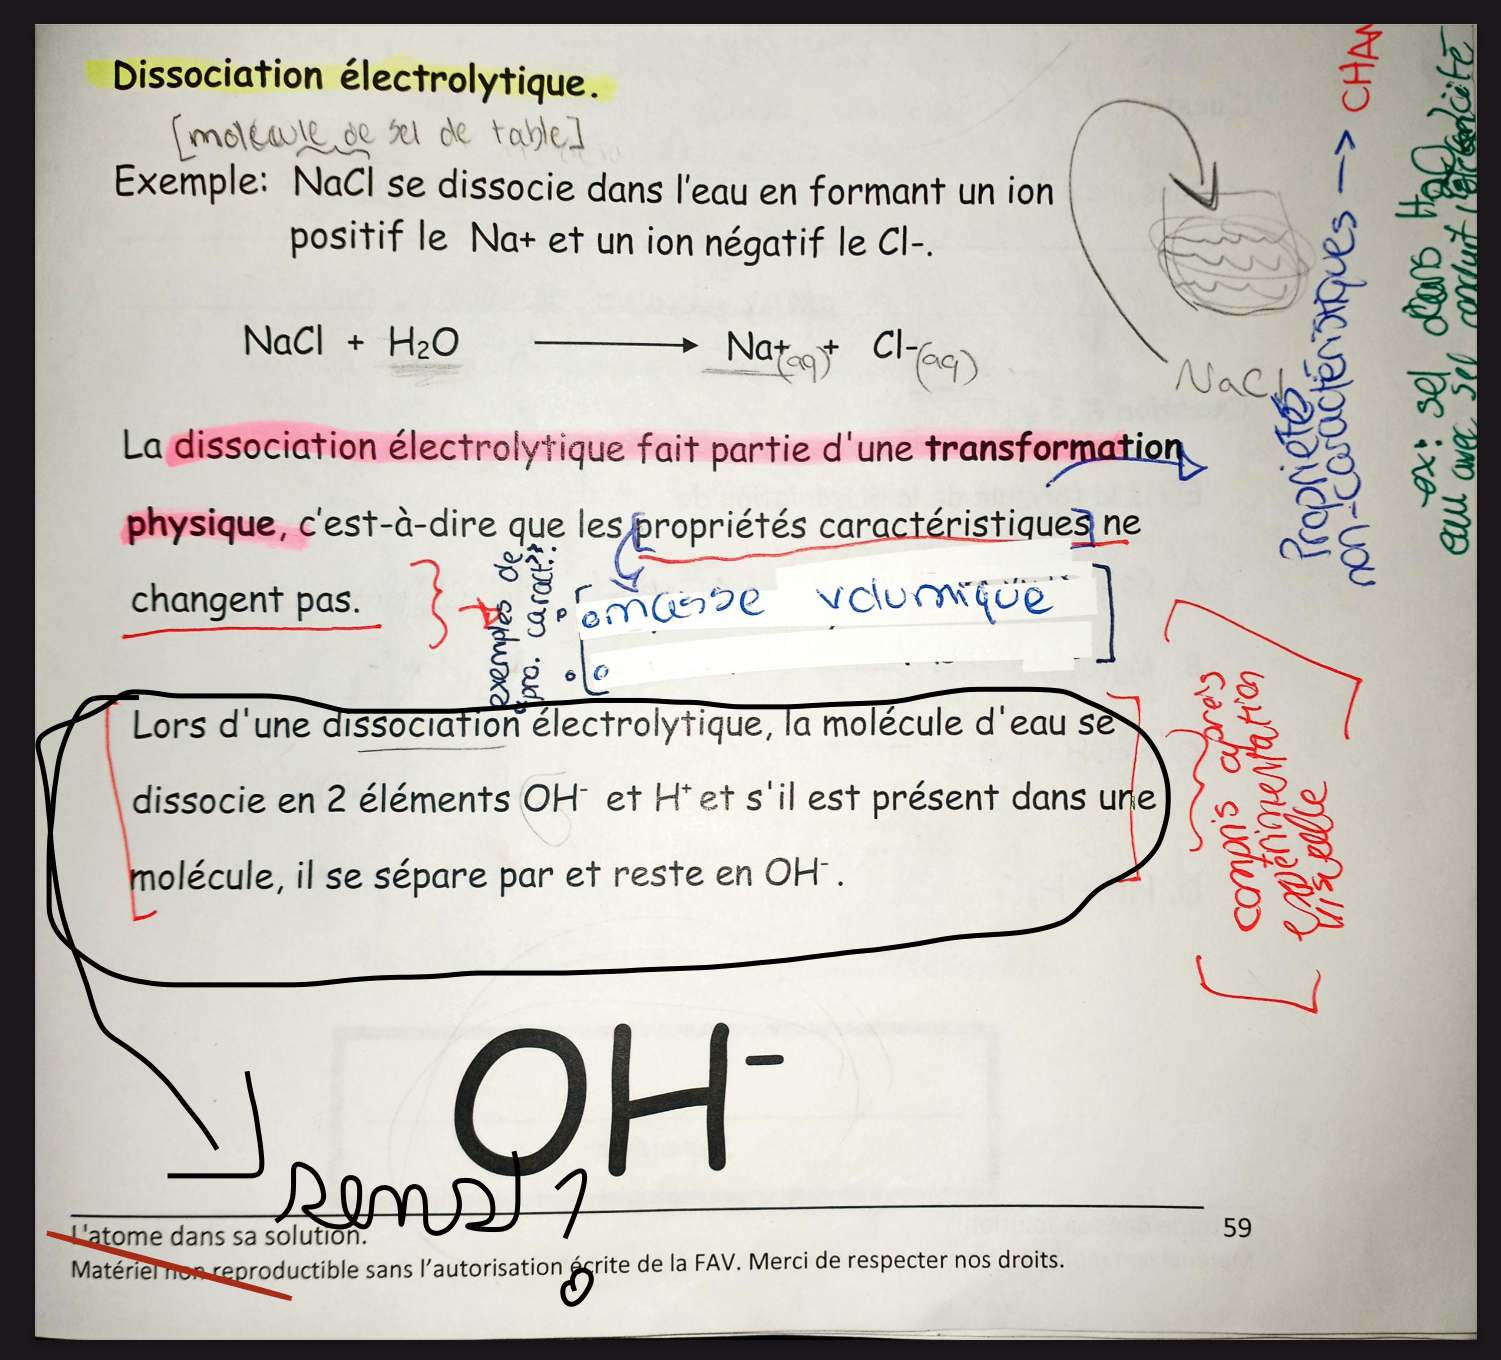 Dissociation électrolytique.
[molécule de sel de table]
Exemple: NaCl se dissocie dans l'eau en formant un ion
positif le Na+ et un ion négatif le Cl-.
NaCl + H₂O → Na+(aq) + Cl-(aq)
NaCl
La dissociation électrolytique fait partie d'une transformation
physique, c'est-à-dire que les [propriétés caractéristiques] ne
changent pas.
exemples de
"pro. caract."
masse volumique
Lors d'une dissociation électrolytique, la molécule d'eau se
dissocie en 2 éléments OH⁻ et H⁺ et s'il est présent dans une
molécule, il se sépare par et reste en OH⁻.
OH⁻
sens ?
Propriétés
non-caractéristiques → CHAN
ex: sel dans H₂O
eau avec sel conduit l'électricité
compris après
expérimentation
visuelle
L'atome dans sa solution.
59
Matériel non reproductible sans l'autorisation écrite de la FAV. Merci de respecter nos droits.